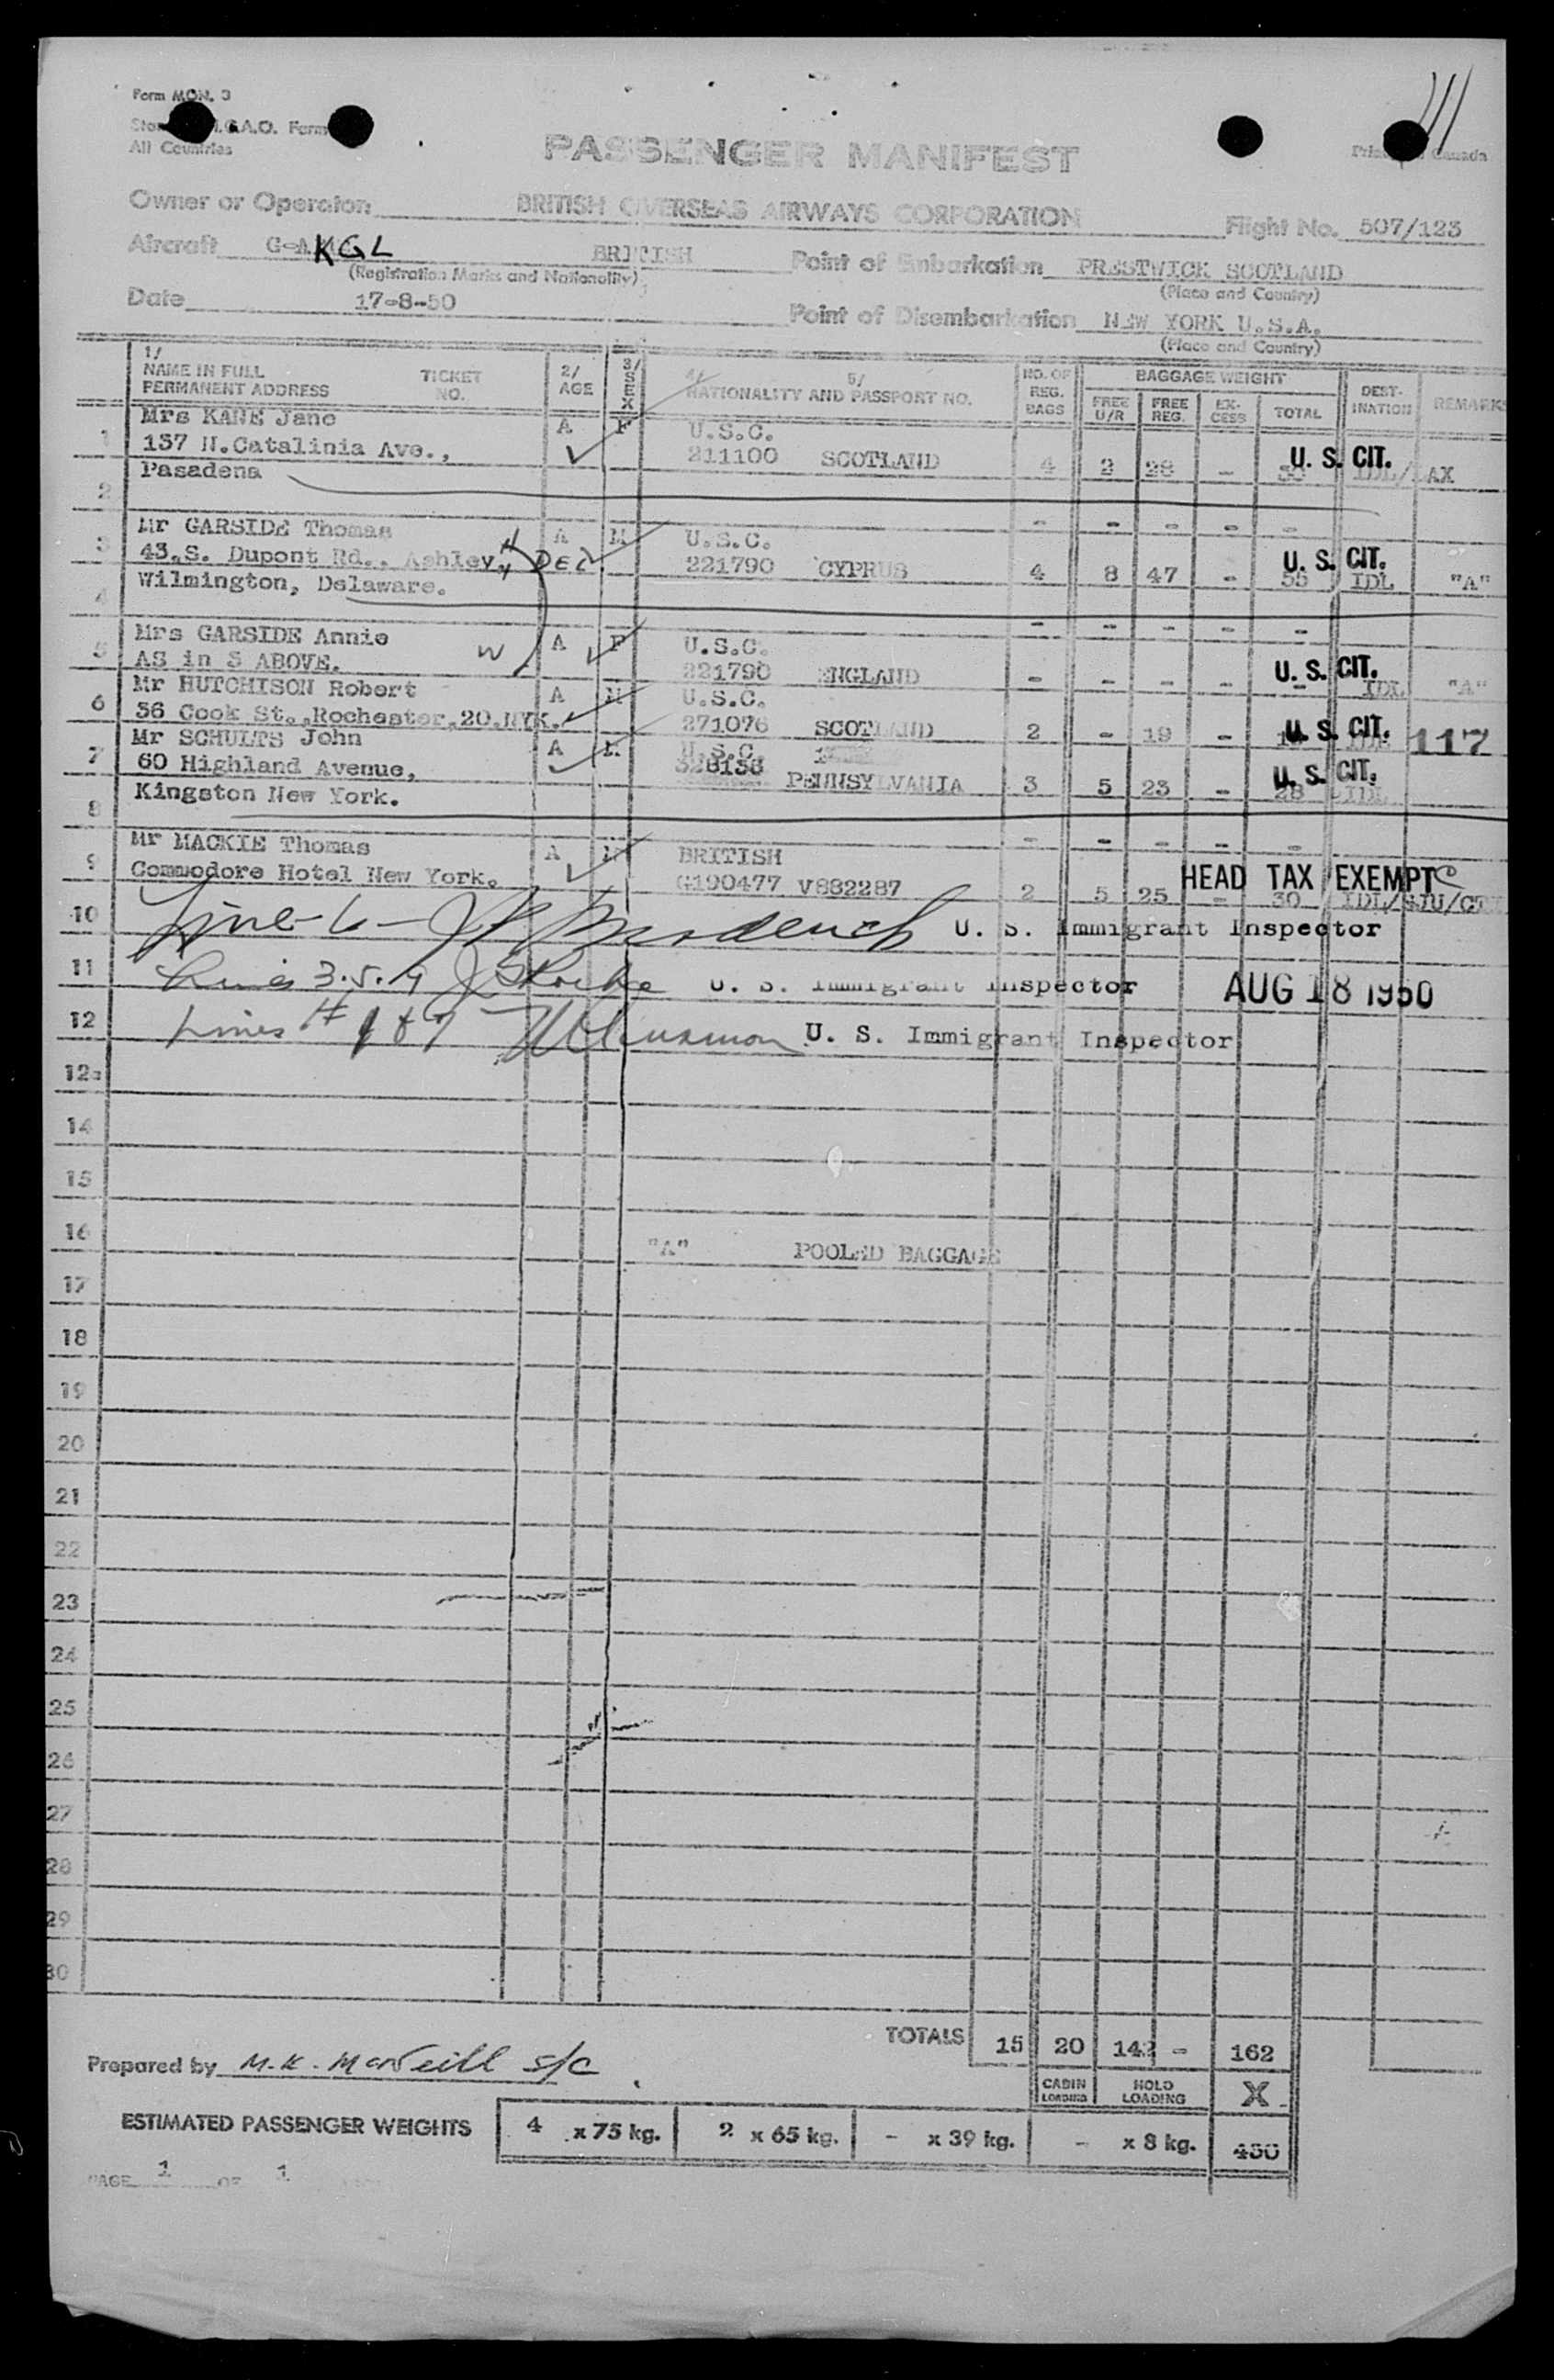 Form MON. 3
I.C.A.O. Form
All Countries
PASSENGER MANIFEST
Owner or Operator BRITISH OVERSEAS AIRWAYS CORPORATION Flight No. 507/123
Aircraft G-A KGL BRITISH Point of Embarkation PRESTWICK SCOTLAND
(Registration Marks and Nationality) (Place and Country)
Date 17-8-50 Point of Disembarkation NEW YORK U.S.A.
(Place and Country)
1/ NAME IN FULL PERMANENT ADDRESS TICKET NO. 2/ AGE 3/ SEX 4/ 5/ NATIONALITY AND PASSPORT NO. NO. OF REG. BAGS BAGGAGE WEIGHT FREE U/R FREE REG. EX-CESS TOTAL DEST-INATION REMARKS
Mrs KANE Jane A F U.S.C.
1 137 N.Catalinia Ave., 211100 SCOTLAND 4 2 28 - 30 U. S. CIT. IDL/LAX
Pasadena
2 - - - - -
Mr GARSIDE Thomas A M U.S.C.
3 43.S. Dupont Rd., Ashley, DEL 221790 CYPRUS 4 8 47 - 55 U. S. CIT. IDL "A"
Wilmington, Delaware.
4 - - - - -
Mrs GARSIDE Annie W A F U.S.C.
5 AS in 3 ABOVE. 221790 ENGLAND - - - - - U. S. CIT. IDL "A"
Mr HUTCHISON Robert A M U.S.C.
6 36 Cook St.,Rochester,20.NYK. 271076 SCOTLAND 2 - 19 - U. S. CIT. IDL 117
Mr SCHULTS John A M U.S.C.
7 60 Highland Avenue, 328136 PENNSYLVANIA 3 5 23 - 28 U. S. CIT. IDL
Kingston New York.
8 - - - - -
Mr MACKIE Thomas A M BRITISH
9 Commodore Hotel New York. G190477 V882287 2 5 25 - 30 HEAD TAX EXEMPT IDL/SJU/
10 Line-6- U. S. Immigrant Inspector
11 Lines 3.5.9 U. S. Immigrant Inspector AUG 18 1950
12 Lines # 1 & 7 U. S. Immigrant Inspector
12a
14
15
16 "A" POOLED BAGGAGE
17
18
19
20
21
22
23
24
25
26
27
28
29
30
TOTALS 15 20 142 - 162
Prepared by M.K. MacNeill S/C
CABIN LOADING HOLD LOADING X
ESTIMATED PASSENGER WEIGHTS 4 x 75 kg. 2 x 65 kg. - x 39 kg. - x 8 kg. 430
PAGE 1 OF 1